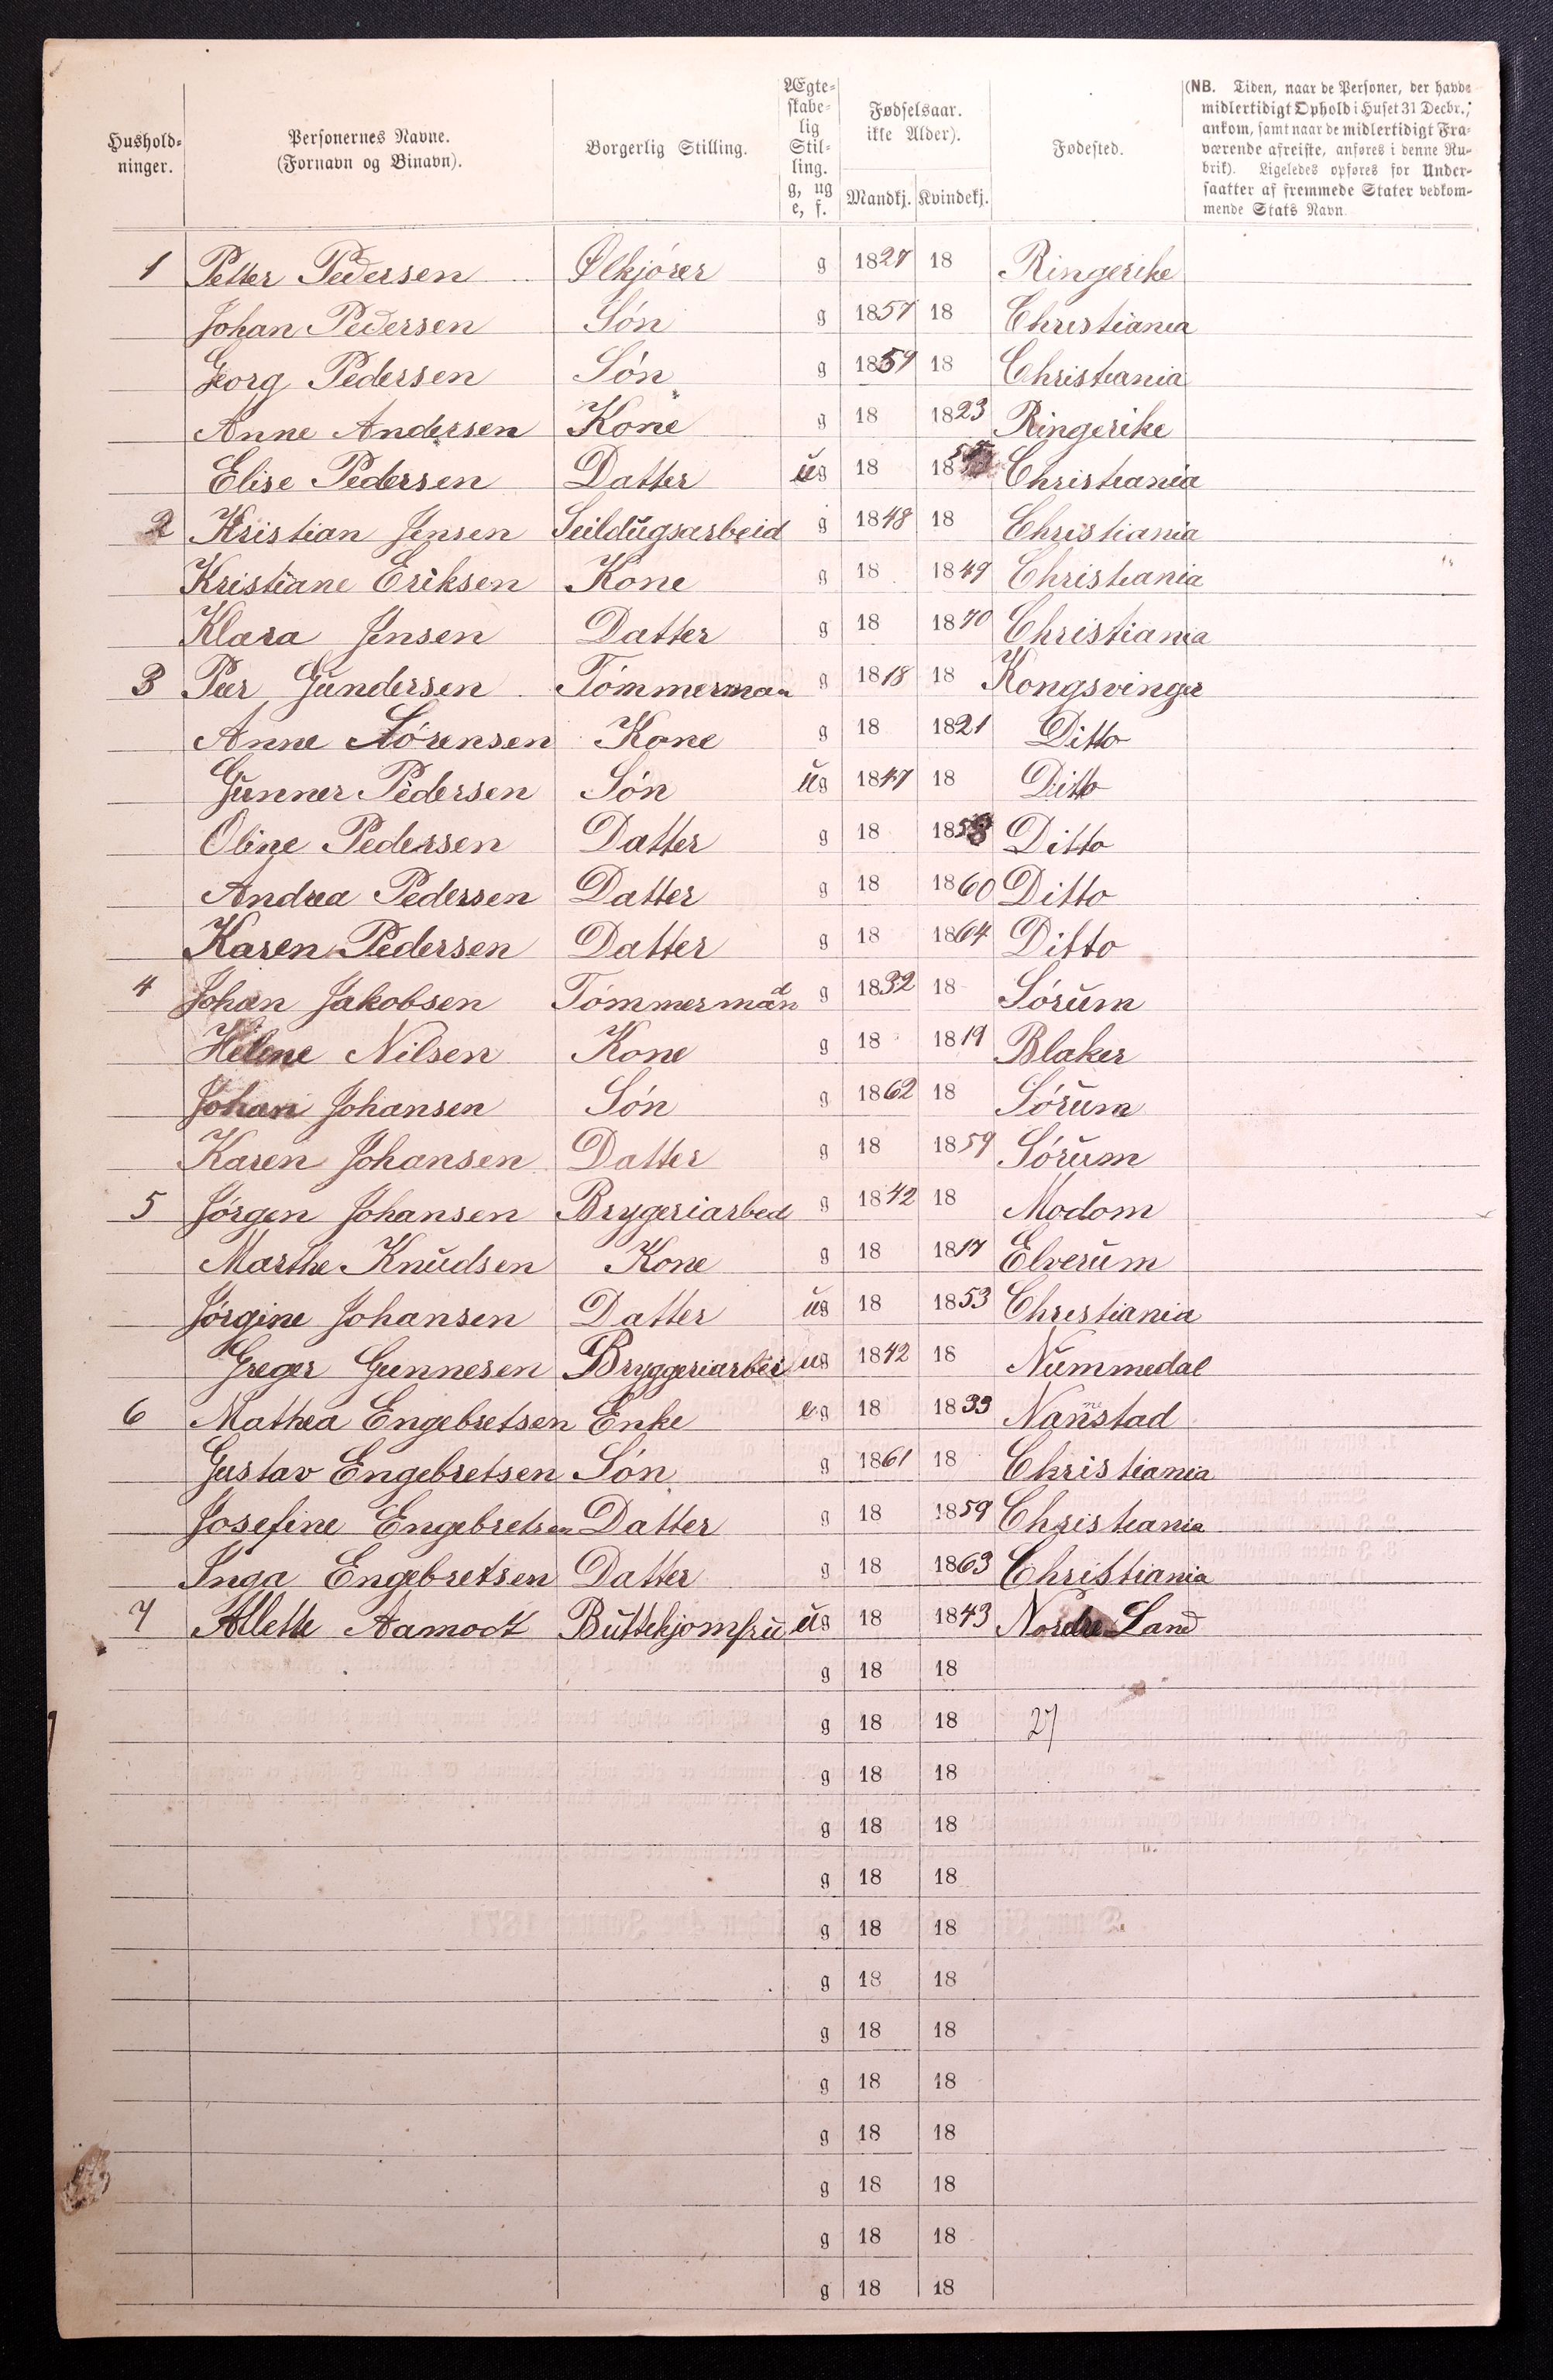 Hushold-
ninger.
Personernes Navne.
(Fornavn og Binavn).
Borgerlig Stilling.
Ægte-
skabe-
lig
Stil-
ling.
g, ug
e, f.
Fødselsaar.
ikke Alder).
Mandkj. Kvindekj.
Fødested.
(NB. Tiden, naar de Personer, der havde
midlertidigt Ophold i Huset 31 Decbr.,
ankom, samt naar de midlertidigt Fra-
værende afreiste, anføres i denne Ru-
brik). Ligeledes opføres for Under-
saatter af fremmede Stater vedkom-
mende Stats Navn.
1 Petter Pedersen Ølkjórer g 1827 18 Ringerike
Johan Pedersen Són g 1857 18 Christiania
Georg Pedersen Són g 1859 18 Christiania
Anne Andersen Kone g 18 1823 Ringerike
Elise Pedersen Datter ŭg 18 18 Christiania
2 Kristian Jensen Seildŭgsarbeid g 1848 18 Christiania
Kristiane Eriksen Kone g 18 1849 Christiania
Klara Jensen Datter g 18 1870 Christiania
3 Peer Gundersen Tómmerman g 1818 18 Kongsvinger
Anne Sórensen Kone g 18 1821 Ditto
Gŭnner Pedersen Són ŭg 1847 18 Ditto
Oline Pedersen Datter g 18 1858 Ditto
Andrea Pedersen Datter g 18 1860 Ditto
Karen Pedersen Datter g 18 1864 Ditto
4 Johan Jakobsen Tómmermand g 1832 18 Sórŭm
Helene Nilsen Kone g 18 1819 Blaker
Johan Johansen Són g 1862 18 Sórŭm
Karen Johansen Datter g 18 1859 Sórŭm
5 Jórgen Johansen Brygeriarbed g 1842 18 Modom
Marthe Knŭdsen Kone g 18 1817 Elverŭm
Jórgine Johansen Datter ŭg 18 1853 Christiania
Greger Gunnesen Bryggeriarbei ug 1842 18 Nŭmmedal
6 Mathea Engebretsen Enke eg 18 1833 Nannestad
Gustav Engebretsen Són g 1861 18 Christiania
Josefine Engebretsen Datter g 18 1859 Christiania
Inga Engebretsen Datter g 18 1863 Christiania
7 Allette Aamodt Bŭttikjomfrŭ ŭg 18 1843 Nordre Land
g 18 18
g 18 18 27
g 18 18
g 18 18
g 18 18
g 18 18
g 18 18
g 18 18
g 18 18
g 18 18
g 18 18
g 18 18
g 18 18